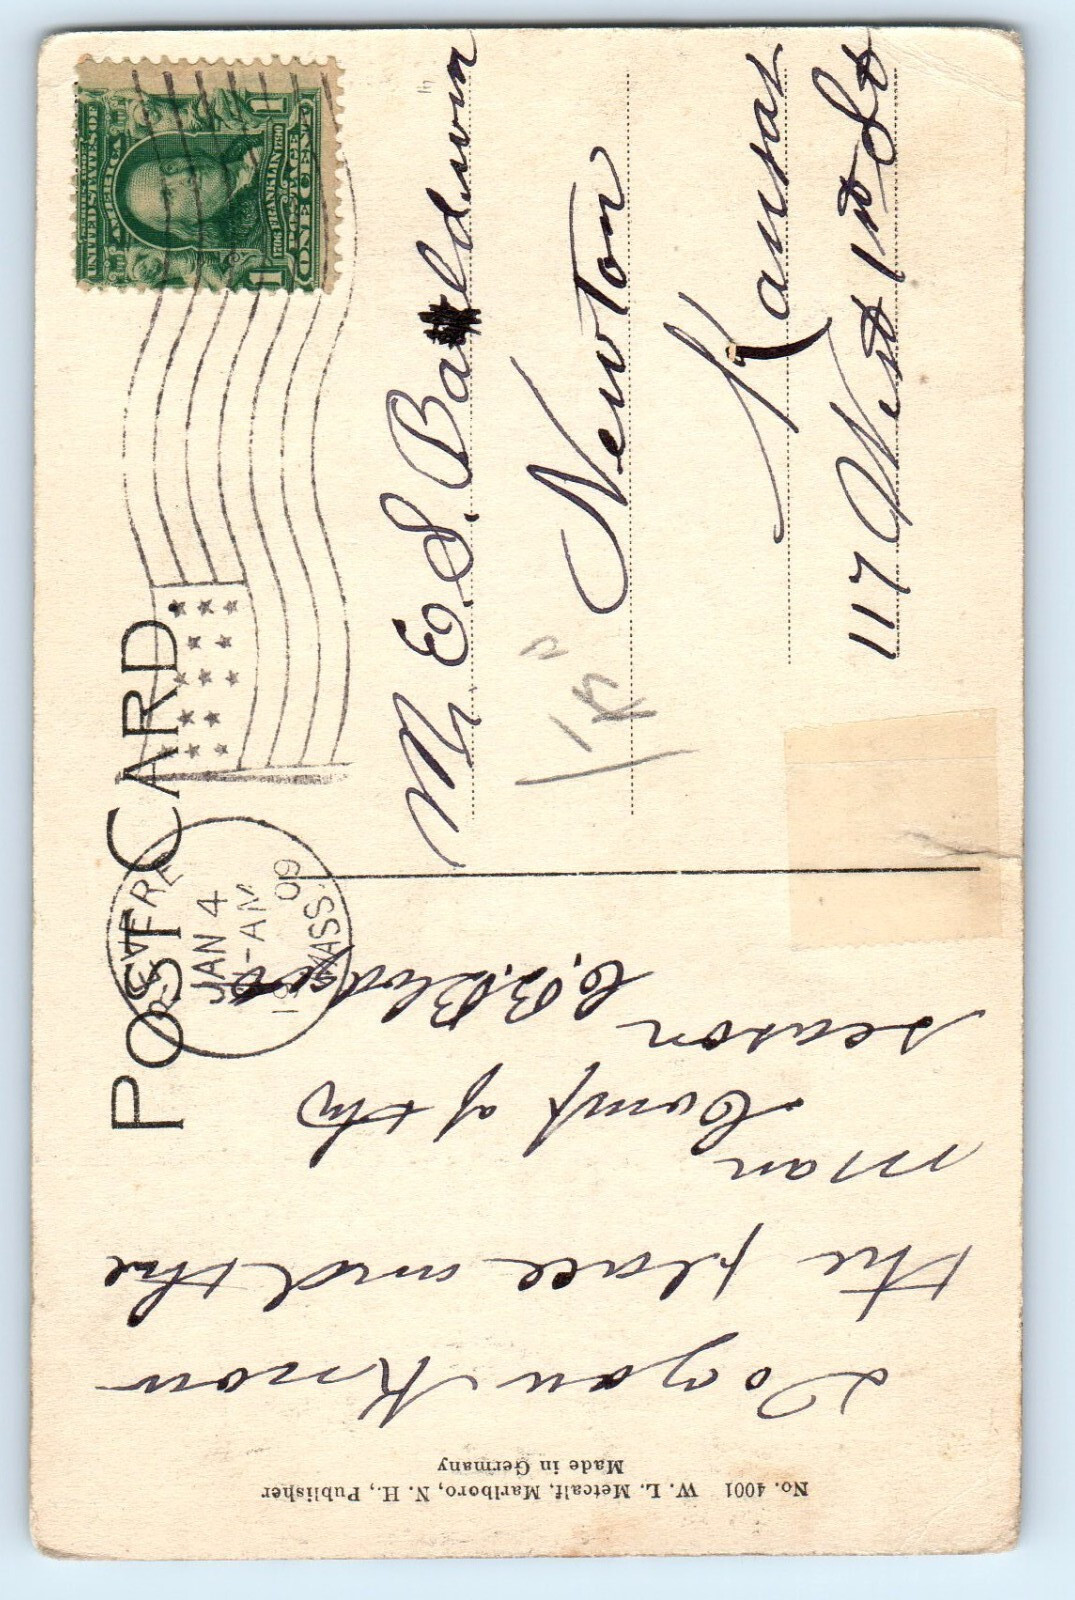 POST CARD.
UNITED STATES OF
AMERICA
1706 FRANKLIN 1790
POSTAGE
1 ONE CENT 1
REVERE
JAN 4
-AM
1909
MASS.
Mr E. S. Baldwin
Newton
Kansas
117 West 1st St
Do you Know
the place and the
man
Comp of the
season
C. B. Blodgett
No. 4001 W. L. Metcalf, Marlboro, N. H., Publisher
Made in Germany